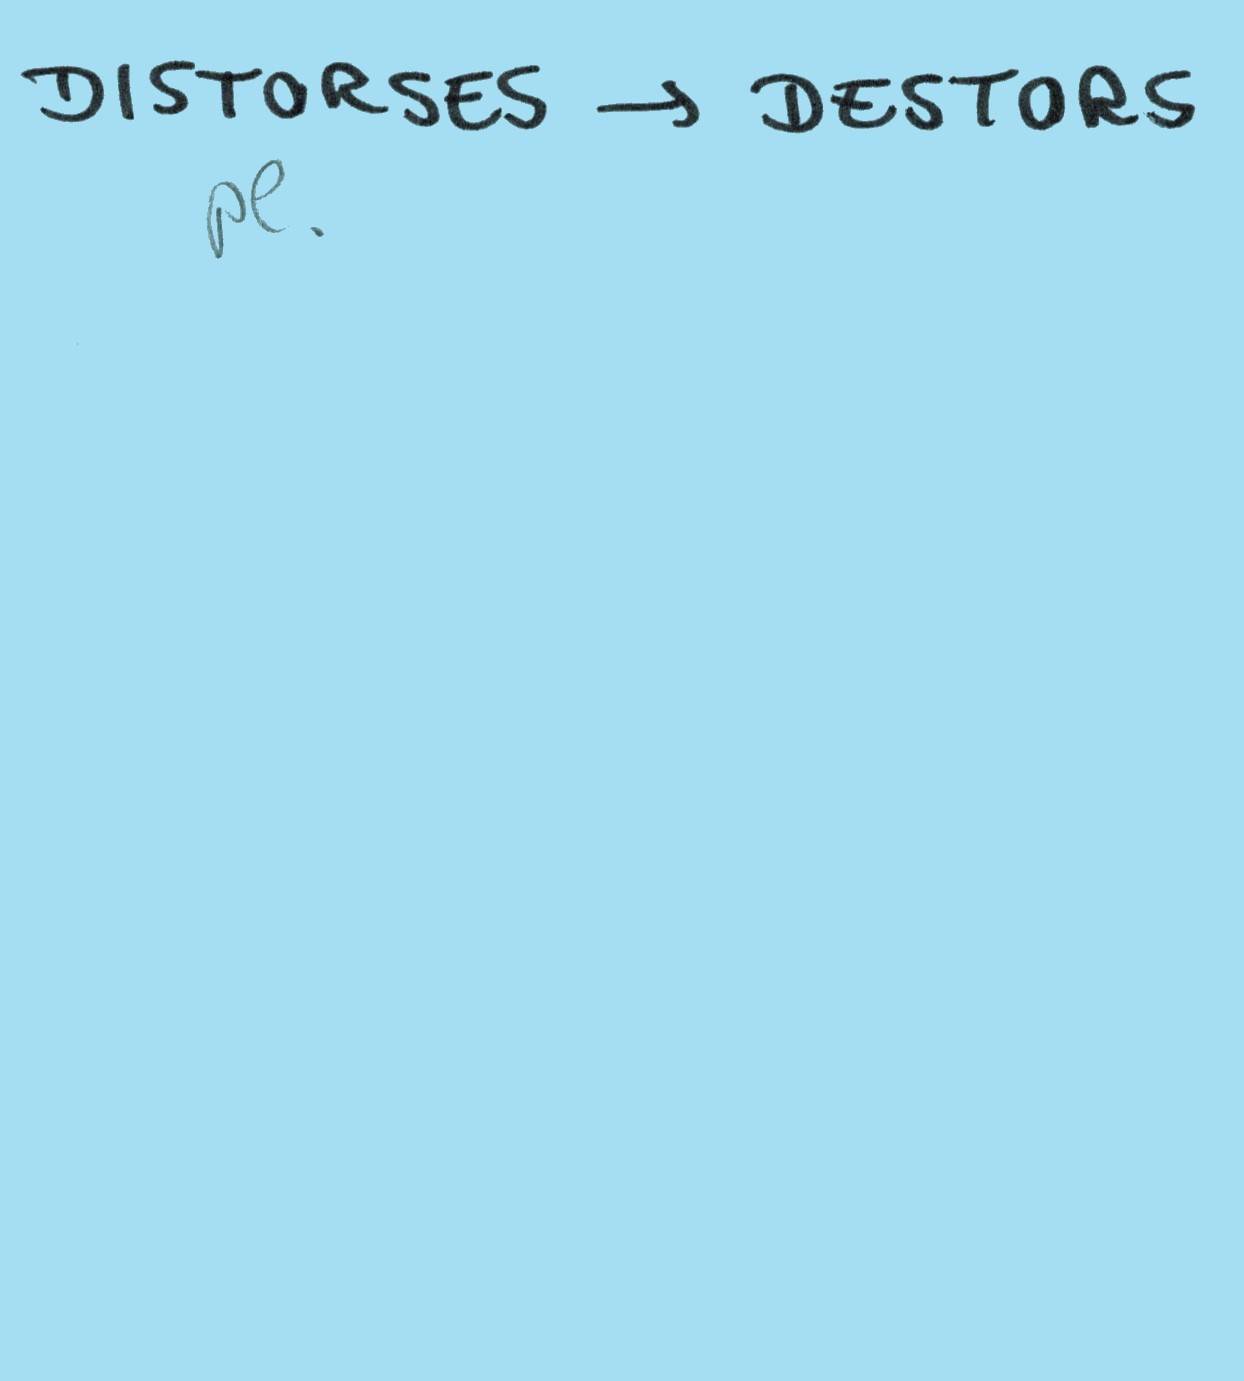 DISTORSES → DESTORS
pl.